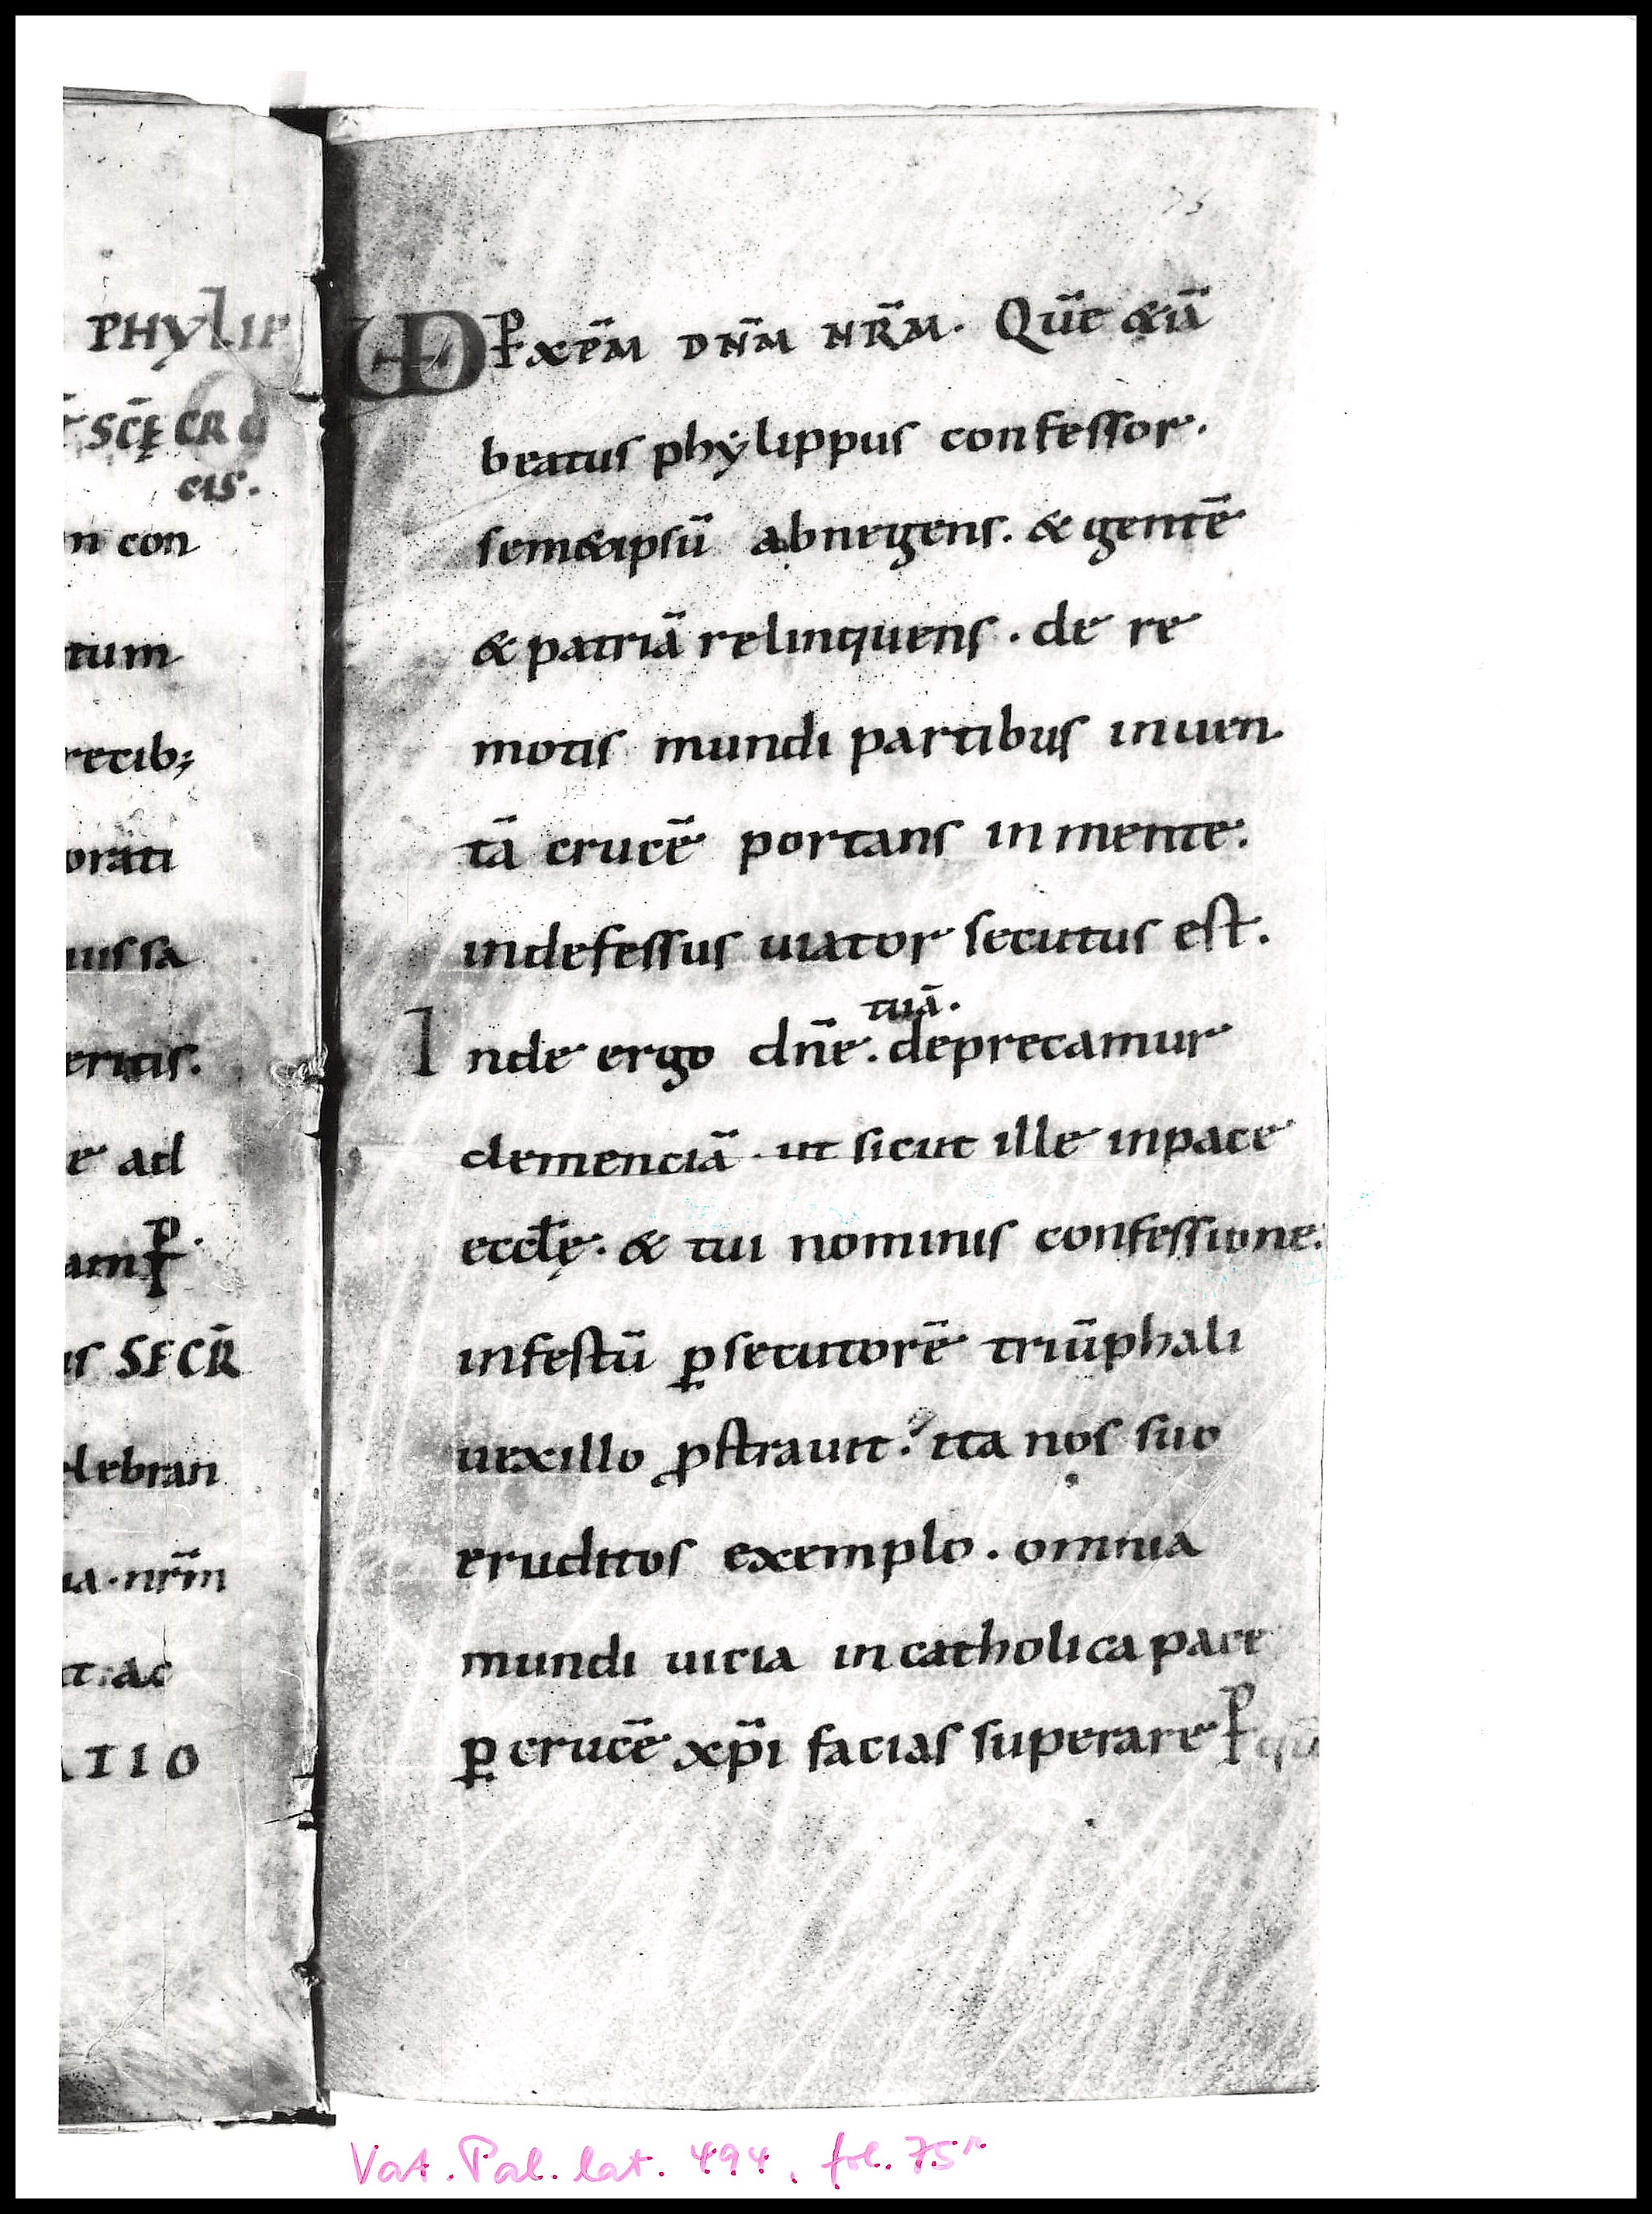 PHYLIP
SCĘ CRU
CIS.
n con
tum
recib;
orati
uissa
eritis.
e ad
am P
is SECR̄
lebran
ia. nr̄m
it. ac
ATIO
75
UD P xp̄m dn̄m nr̄m. Quē &iā
beatus phylippus confessor.
sem&ipsū abnegens. & gentē
& patriā relinquens. de re
motis mundi partibus inuen
tā crucē portans in mente.
indefessus uiator secutus est.
tuā.
Inde ergo dn̄e. deprecamur
clemenciā. ut sicut ille inpace
eccłę. & tui nominis confessione.
infestū ꝑsecutorē triūphali
uexillo ꝓstrauit. ita nos suo
eruditos exemplo. omnia
mundi uicia in catholica pace
ꝑ crucē xp̄i facias superare P qū
Vat. Pal. lat. 494, fol. 75r